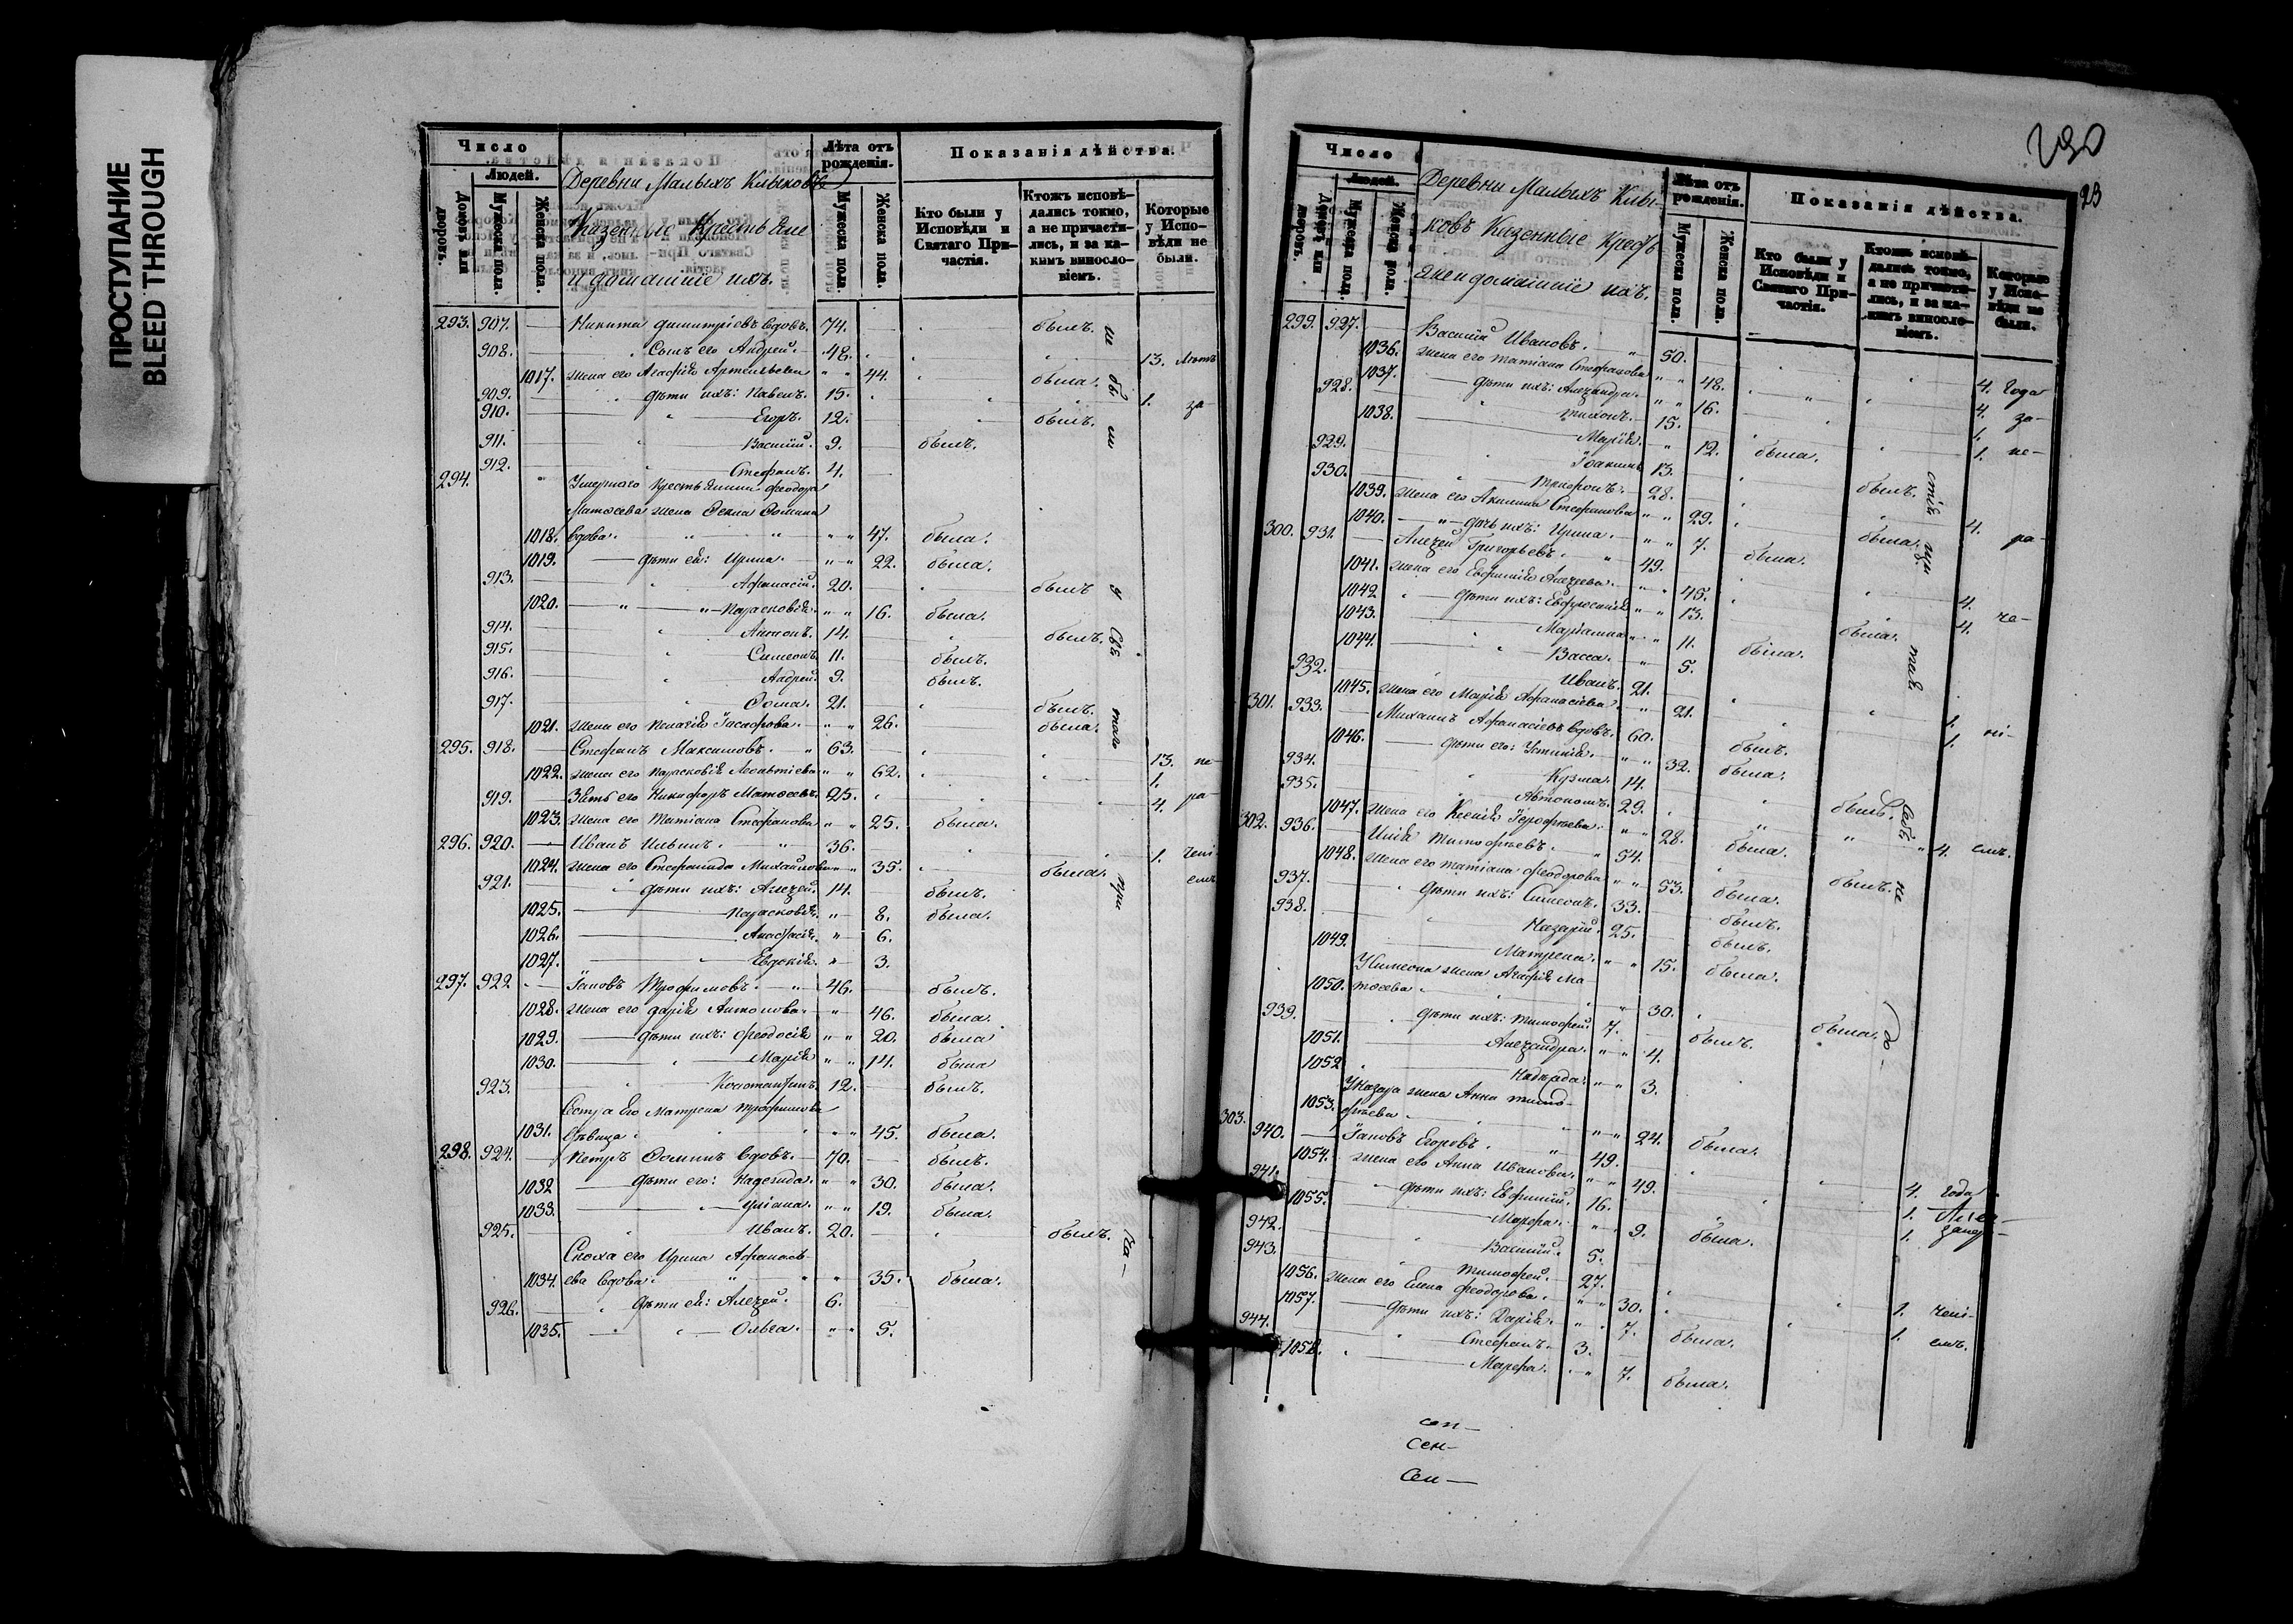 ПРОСТУПАНИЕ
BLEED THROUGH
Число
Людей.
Домовъ или дворовъ.
Мужеска пола.
Женска пола.
Деревни Малыхъ Клыковъ
Казенные Крестьяне
и домашніе ихъ.
Лѣта отъ рожденія.
Мужеска пола.
Женска пола.
Показанія дѣйства.
Кто были у Исповѣди и Святаго Причастія.
Ктожъ исповѣдались токмо, а не причастились, и за какимъ винословіемъ.
Которые у Исповѣди не были.
293. 907. Никита Димитріевъ вдовъ. 74. былъ.
908. Сынъ его Андрей. 48. 13. Лѣтъ
1017. Жена его Агафія 44. была.
909. дѣти ихъ: Павелъ. 15. 1. за
910. Егоръ. 12. былъ.
911. Василій. 9. былъ.
912. Стефанъ. 4.
294. Умершаго Крестьянина Феодора
Матѳеева жена Ѳекла Ѳомина
1018. вдова. 47. была.
1019. дѣти ея: Ирина. 22. была.
913. Афанасій. 20. былъ
1020. Парасковія. 16. была.
914. Антонъ. 14. былъ.
915. Симеонъ. 11. былъ.
916. Андрей. 9. былъ.
917. Ѳома. 21. былъ.
1021. Жена его Пелагія 26. была.
295. 918. Стефанъ Максимовъ. 63. 13. не
1022. Жена его Парасковія Леонтіева 62. 1.
919. Зять его Никифоръ Матѳеевъ. 25. 4. ра
1023. Жена его Татіана Стефанова 25. была.
296. 920. Иванъ Ильинъ. 36. 1. чені
1024. Жена его Стефанида Михайлова 35. была. емъ
921. дѣти ихъ: Алеѯей. 14. былъ.
1025. Парасковія. 8. была.
1026. Анастасія. 6.
1027. Евдокія. 3.
297. 922. Іаковъ Трофимовъ. 46. былъ.
1028. Жена его Дарія Антонова. 46. была.
1029. дѣти ихъ: Феодосія 20. была
1030. Марія 14. была
923. Константинъ. 12. былъ.
Сестра Его Матрена Трофимова
1031. дѣвица. 45. была.
298. 924. Петръ Ѳоминъ вдовъ. 70. былъ.
1032 дѣти его: Надежда. 30. была.
1033. Уліана. 19. была.
925. Иванъ. 20. былъ.
Сноха его Ирина Афанась
1034. ева вдова. 35. была.
926. дѣти ея: Алеѯей. 6.
1035. Ольга. 5.
290
23
Число
Людей.
Домовъ или дворовъ.
Мужеска пола.
Женска пола.
Деревни Малыхъ Клы-
ковъ Казенные Кресть
яне и домашніе ихъ.
Лѣта отъ рожденія.
Мужеска пола.
Женска пола.
Показанія дѣйства.
Кто были у Исповѣди и Святаго Причастія.
Ктожъ исповѣдались токмо, а не причастились, и за какимъ винословіемъ.
Которые у Исповѣди не были.
299. 927. Василій Ивановъ. 50. 4. Года
1036. Жена его Татіана Стефанова 48. 4. за-
1037. дѣти ихъ: Алеѯандра. 16. 1.
928. Тихонъ. 15. 1. не-
1038. Марія. 12. была.
929. Іоакимъ 13. былъ.
930. Трифонъ. 28. 4.
1039. Жена его Акилина Стефанова 29. была. ра-
1040. дочь ихъ: Ирина. 7. была.
300. 931. Алеѯей Григорьевъ. 49. 4.
1041. Жена его Евфимія Алеѯеева. 45. 4. че-
1042 дѣти ихъ: Евфросинія 13. была.
1043. Маріамна 11. была.
1044. Васса. 5.
932. Иванъ. 21. 1.
1045. Жена его Марія Афанасіева. 21. 1. ні-
301. 933. Михаилъ Афанасіевъ вдовъ. 60. былъ.
1046. дѣти его: Устинія. 32. была.
934. Кузма. 14. былъ.
935. Автономъ. 29. 4. емъ.
1047. Жена его Ксенія 28. была.
302. 936. Илія Тимофѣевъ. 54. былъ.
1048. Жена его Татіана Феодорова 53. была.
937. дѣти ихъ: Симеонъ. 33. былъ.
938. Назарій. 25. былъ.
1049. Матрена. 15. была.
У Симеона жена Агафія Ма
1050. тѳеева 30. была.
939. дѣти ихъ: Тимофей. 7. былъ.
1051. Алеѯандра. 4.
1052 Надежда. 3.
У Назара жена Анна Тимо-
1053. фѣева 24. была.
303. 940. Іаковъ Егоровъ. 49. 4. Года
1054. Жена его Анна Иванова. 49. 1.
941. дѣти ихъ: Евфимій. 16. 1.
1055. Марфа. 9. была.
942. Василій. 5.
943. Тимофей. 27. 1. чені-
1056. Жена его Елена Феодорова. 30. 1. емъ.
1057. дѣти ихъ: Дарія. 7. была.
944. Стефанъ. 3.
1058. Марфа. 7. была.
сен-
сен-
Сен-